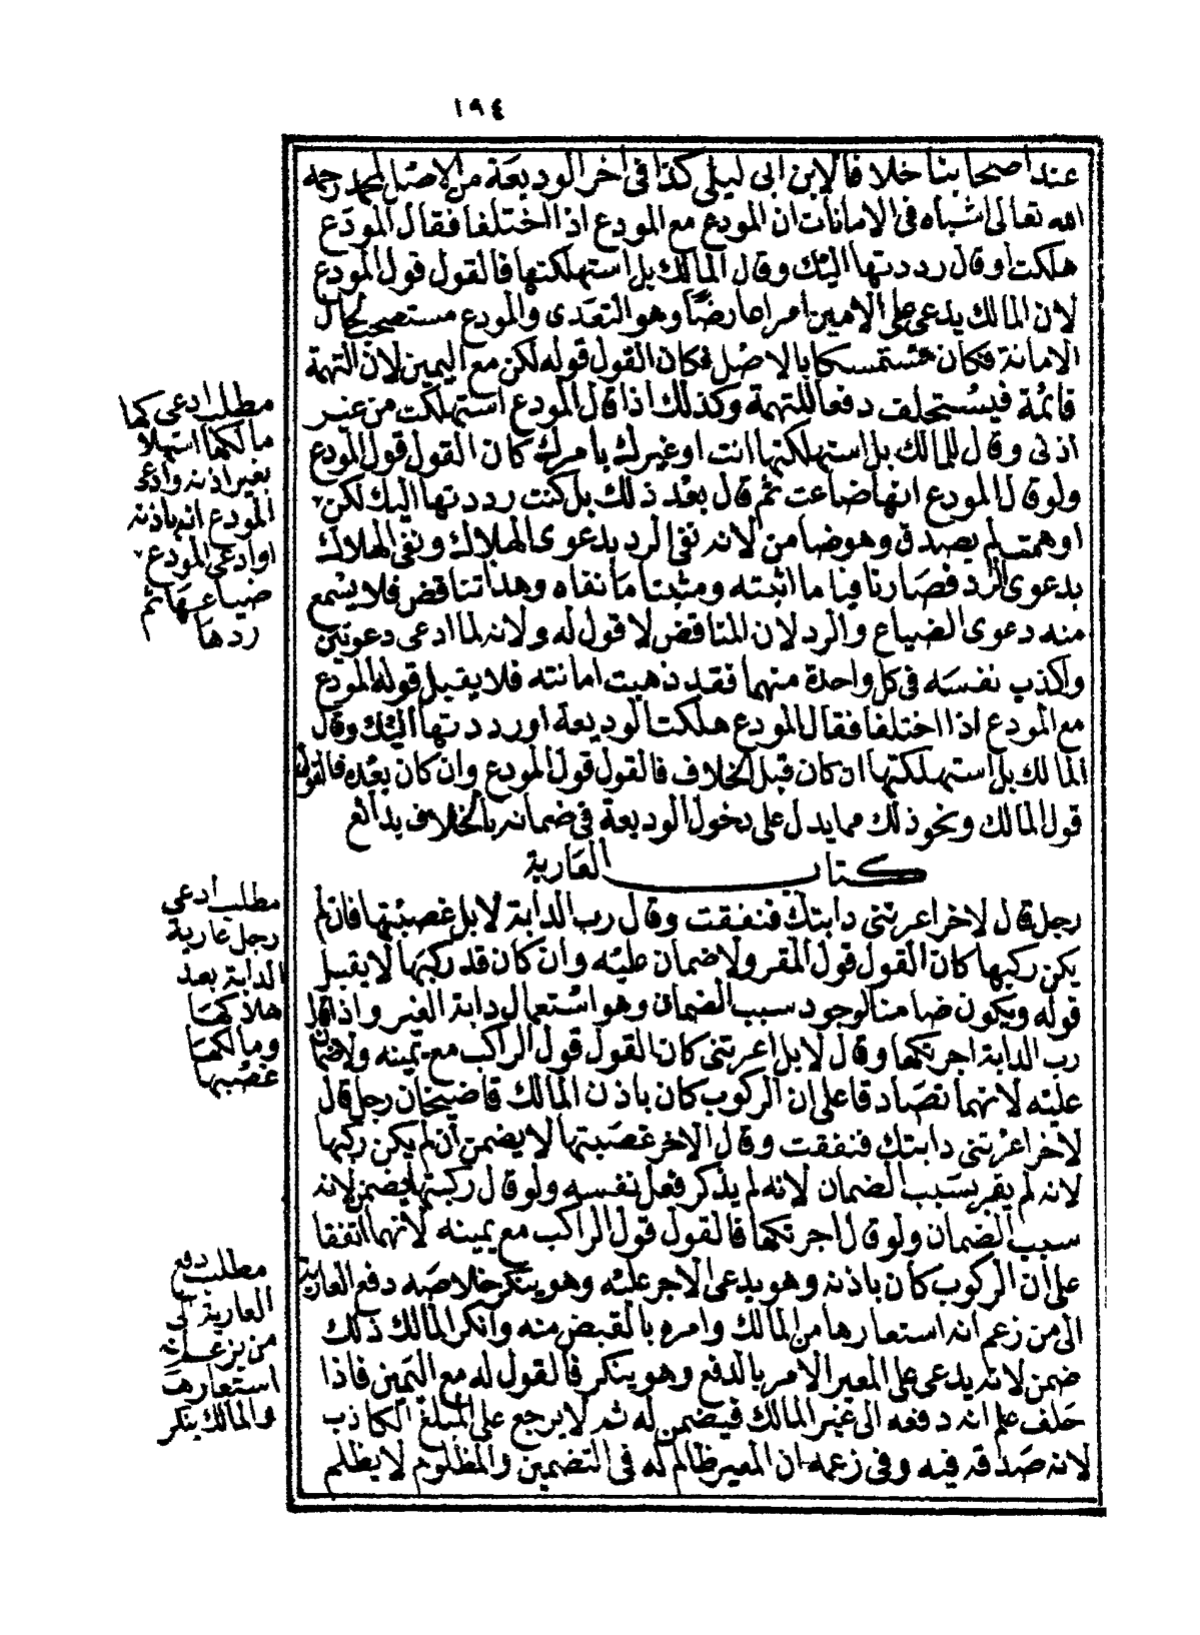 ١٩٤
عند اصحابنا خلافا لابن ابى ليلى كذا فى اخر الوديعة من الاصل لمحمد رحمه
الله تعالى اشباه فى الامانات ان المودع مع المودع اذا اختلفا فقال المودع
هلكت او قال رددتها اليك وقال المالك بل استهلكتها فالقول قول المودع
لان المالك يدعى على الامين امرا عارضا وهو التعدى والمودع مستصحب لحال
الامانة فكان متمسكا بالاصل فكان القول قوله لكن مع اليمين لان التهمة
قائمة فيستحلف دفعا للتهمة وكذلك اذا قال المودع استهلكت من غير
اذنى وقال للمالك بل استهلكتها انت او غيرك بامرك كان القول قول المودع
ولو قال المودع انها ضاعت ثم قال بعد ذلك بل كنت رددتها اليك لكن
اوهمت لم يصدق وهو ضامن لانه نفى الرد بدعوى الهلاك ونفى الهلاك
بدعوى الرد فصار نافيا ما اثبته ومثبتا ما نفاه وهذا تناقض فلا يسمع
منه دعوى الضياع والرد لان المتناقض لا قول له ولانه لما ادعى دعوتين
واكذب نفسه فى كل واحدة منهما فقد ذهبت امانته فلا يقبل قوله المودع
مع المودع اذا اختلفا فقال المودع هلكت الوديعة او رددتها اليك وقال
المالك بل استهلكتها ان كان قبل الخلاف فالقول قول المودع وان كان بعده فالقول
قول المالك ونحو ذلك مما يدل على دخول الوديعة فى ضمانه بالخلاف بدائع
كتاب العارية
رجل قال لاخر اعرتنى دابتك فنفقت وقال رب الدابة لا بل غصبتها فان لم
يكن ركبها كان القول قول المقر ولا ضمان عليه وان كان قد ركبها لا يقبل
قوله ويكون ضامنا لوجود سبب الضمان وهو استعمال دابة الغير واذا قال
رب الدابة اجرتكها وقال لا بل اعرتنى كان القول قول الراكب مع يمينه ولا ضمان
عليه لانهما تصادقا على ان الركوب كان باذن المالك قاضيخان رجل قال
لاخر اعرتنى دابتك فنفقت وقال الاخر غصبتها لا يضمن ان لم يكن ركبها
لانه لم يقر بسبب الضمان لانه لم يذكر فعل نفسه ولو قال ركبتها يضمن لانه
سبب الضمان ولو قال اجرتكها فالقول قول الراكب مع يمينه لانهما اتفقا
على ان الركوب كان باذنه وهو يدعى الاجر عليه وهو ينكر خلاصه دفع العارية
الى من زعم انه استعارها من المالك وامره بالقبض منه وانكر المالك ذلك
ضمن لانه يدعى على المعير الامر بالدفع وهو ينكر فالقول له مع اليمين فاذا
حلف علم انه دفعه الى غير المالك فيضمن له ثم لا يرجع على المبلغ الكاذب
لانه صدقه فيه وفى زعمه ان المعير ظالم له فى التضمين والمظلوم لا يظلم
مطلب ادعى كما
مالكها استهلا
بغير اذنه وادعى
المودع انه باذنه
او ادعى المودع
ضياعها ثم
ردها
مطلب ادعى
رجل عارية
الدابة بعد
هلاكها
ومالكها
غصبها
مطلب دفع
العارية الى
من يزعم انه
استعارها
والمالك ينكر